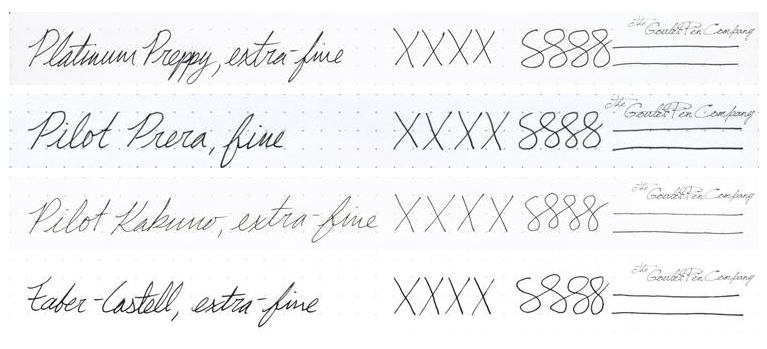 Platinum Preppy, extra-fine XXXX 8888 the Goulet Pen Company
Pilot Prera, fine XXXX 8888 the Goulet Pen Company
Pilot Kakuno, extra-fine XXXX 8888 the Goulet Pen Company
Faber-Castell, extra-fine XXXX 8888 the Goulet Pen Company